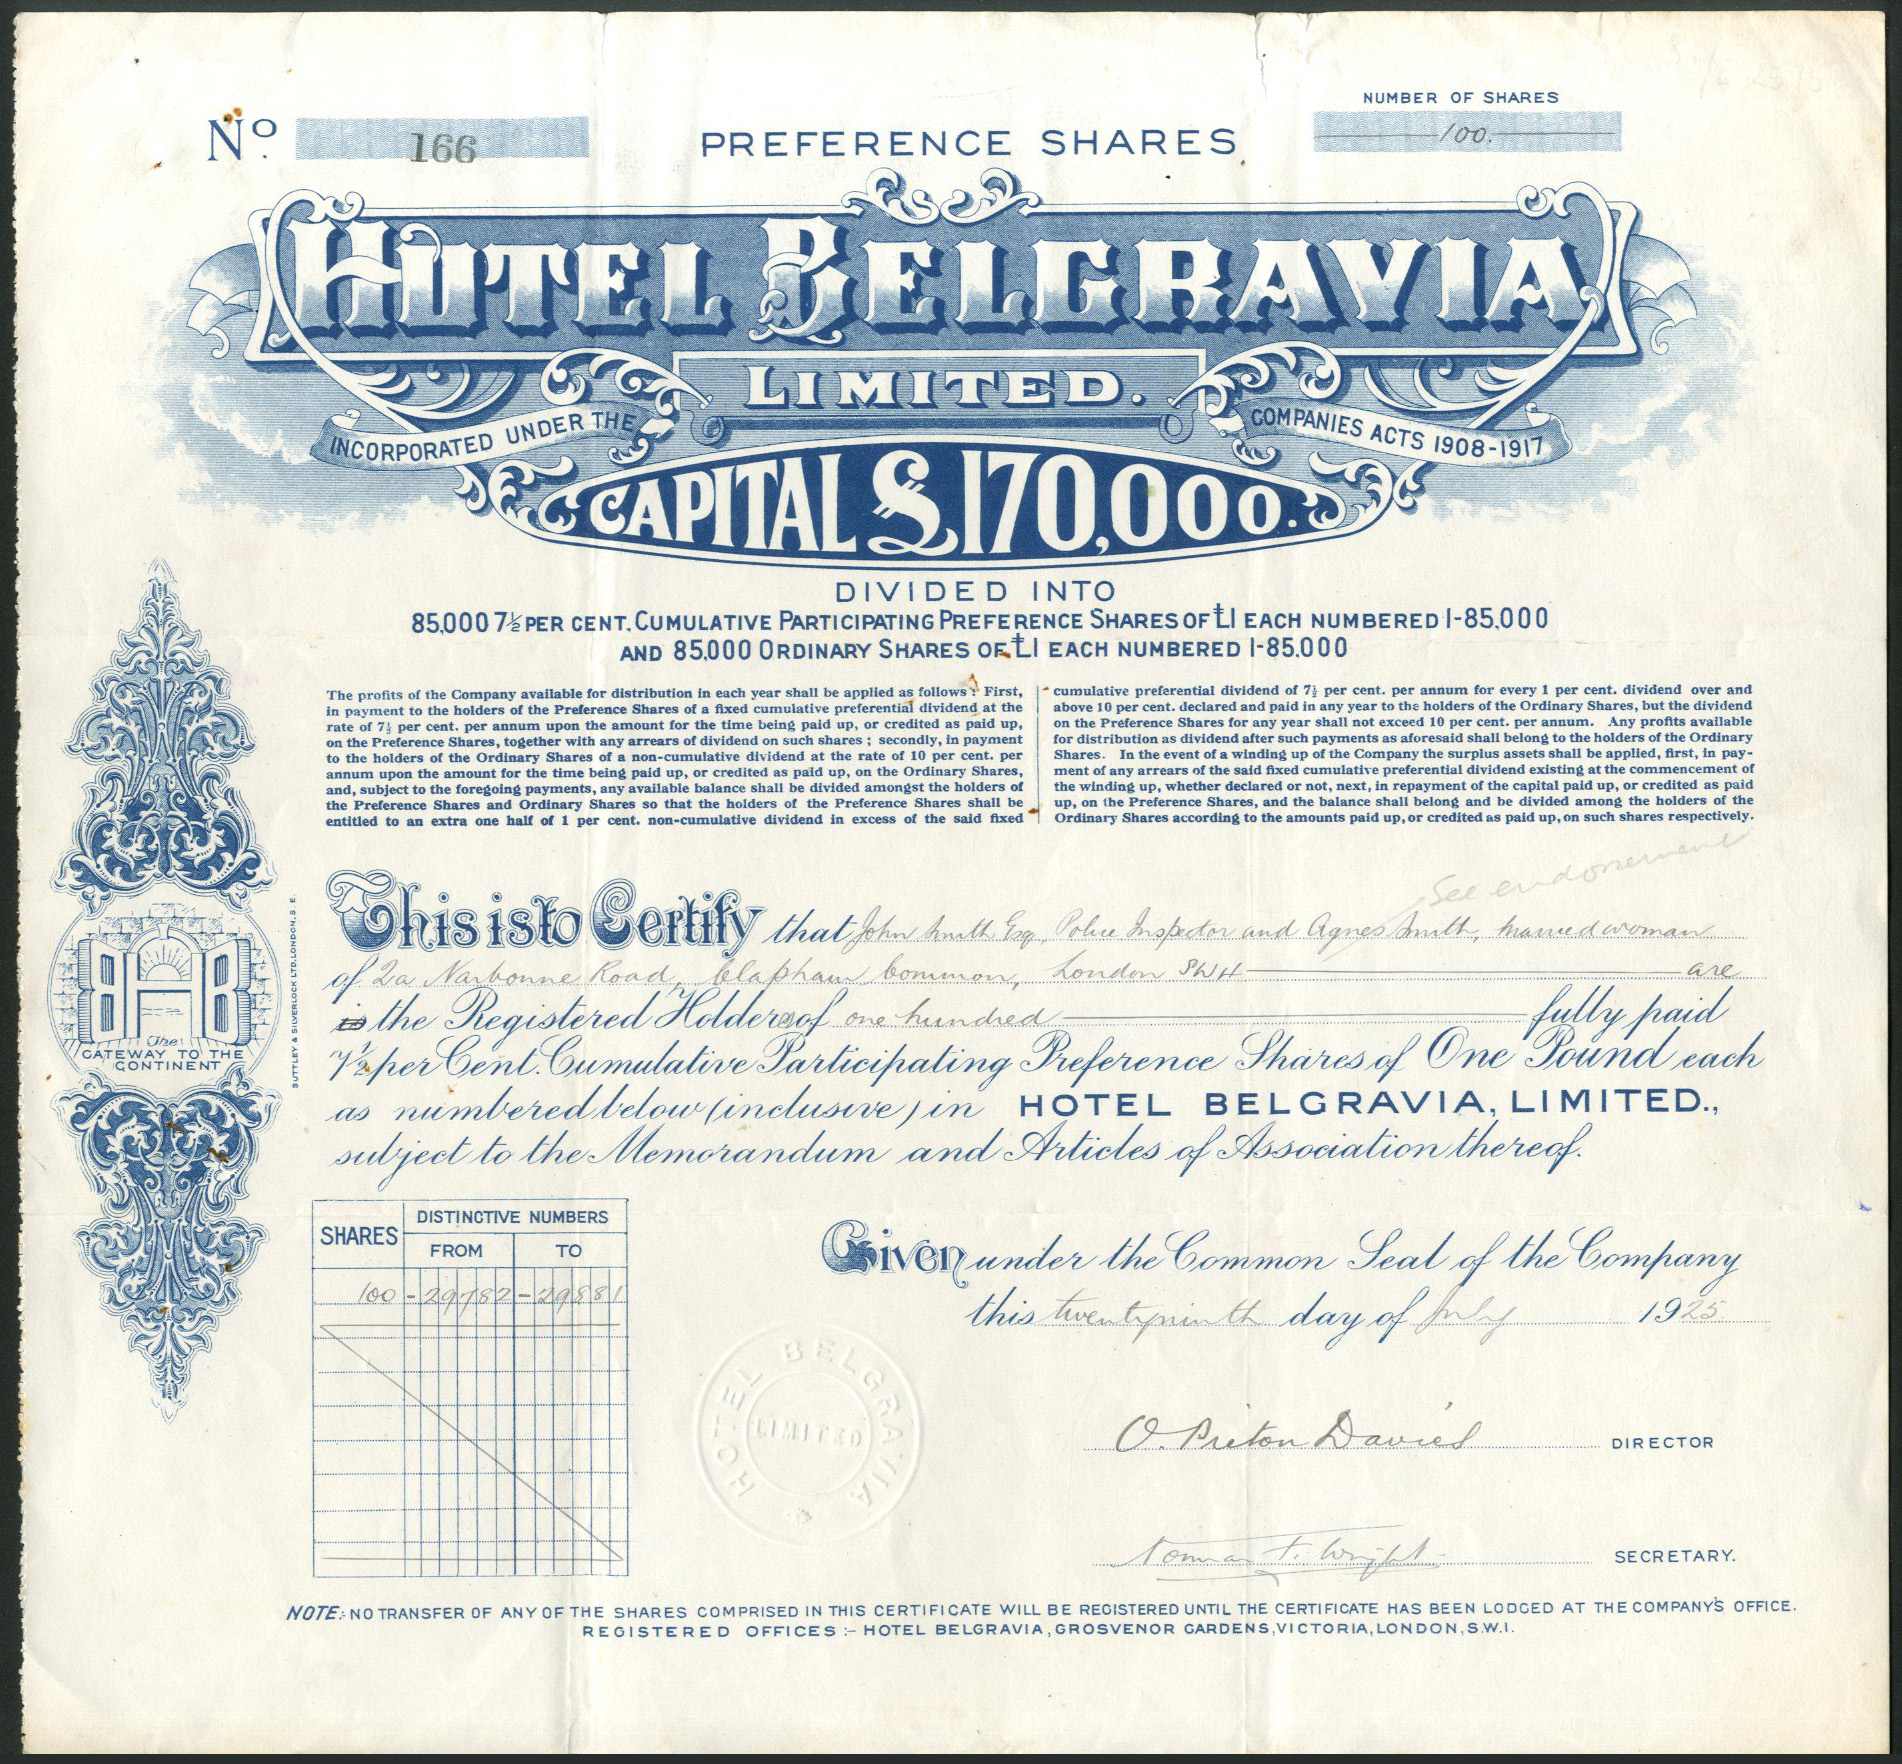 No. 166
PREFERENCE SHARES
NUMBER OF SHARES
100.
HOTEL BELGRAVIA
LIMITED.
INCORPORATED UNDER THE COMPANIES ACTS 1908-1917
CAPITAL £170,000.
DIVIDED INTO
85,000 7½ PER CENT. CUMULATIVE PARTICIPATING PREFERENCE SHARES OF £1 EACH NUMBERED 1-85,000
AND 85,000 ORDINARY SHARES OF £1 EACH NUMBERED 1-85.000
The profits of the Company available for distribution in each year shall be applied as follows: First,
in payment to the holders of the Preference Shares of a fixed cumulative preferential dividend at the
rate of 7½ per cent. per annum upon the amount for the time being paid up, or credited as paid up,
on the Preference Shares, together with any arrears of dividend on such shares; secondly, in payment
to the holders of the Ordinary Shares of a non-cumulative dividend at the rate of 10 per cent. per
annum upon the amount for the time being paid up, or credited as paid up, on the Ordinary Shares,
and, subject to the foregoing payments, any available balance shall be divided amongst the holders of
the Preference Shares and Ordinary Shares so that the holders of the Preference Shares shall be
entitled to an extra one half of 1 per cent. non-cumulative dividend in excess of the said fixed
cumulative preferential dividend of 7½ per cent. per annum for every 1 per cent. dividend over and
above 10 per cent. declared and paid in any year to the holders of the Ordinary Shares, but the dividend
on the Preference Shares for any year shall not exceed 10 per cent. per annum. Any profits available
for distribution as dividend after such payments as aforesaid shall belong to the holders of the Ordinary
Shares. In the event of a winding up of the Company the surplus assets shall be applied, first, in pay-
ment of any arrears of the said fixed cumulative preferential dividend existing at the commencement of
the winding up, whether declared or not, next, in repayment of the capital paid up, or credited as paid
up, on the Preference Shares, and the balance shall belong and be divided among the holders of the
Ordinary Shares according to the amounts paid up, or credited as paid up, on such shares respectively.
See endorsement
This is to Certify that John Smith Esq. Police Inspector and Agnes Smith, married woman
of 2a Narbonne Road, Clapham Common, London SW4 are
is the Registered Holders of one hundred fully paid
7½ per Cent. Cumulative Participating Preference Shares of One Pound each
as numbered below (inclusive) in HOTEL BELGRAVIA, LIMITED.,
subject to the Memorandum and Articles of Association thereof.
HB
The
GATEWAY TO THE
CONTINENT
SUTTLEY & SILVERLOCK LTD. LONDON. S.E.
SHARES DISTINCTIVE NUMBERS
FROM TO
100 - 29782 - 29881
Given under the Common Seal of the Company
this twentyninth day of July 1925
HOTEL BELGRAVIA
LIMITED
O. Picton Davies DIRECTOR
Norman F. Wright SECRETARY.
NOTE:- NO TRANSFER OF ANY OF THE SHARES COMPRISED IN THIS CERTIFICATE WILL BE REGISTERED UNTIL THE CERTIFICATE HAS BEEN LODGED AT THE COMPANY'S OFFICE.
REGISTERED OFFICES:- HOTEL BELGRAVIA, GROSVENOR GARDENS, VICTORIA, LONDON, S.W.1.